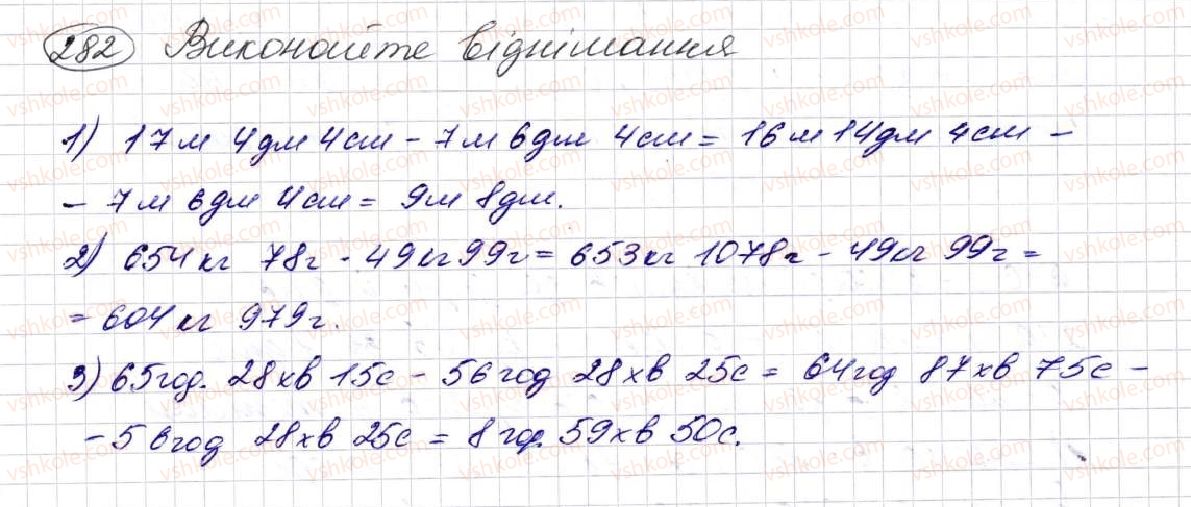 282 Виконайте віднімання
1) 17м 4дм 4см - 7м 6дм 4см = 16м 14дм 4см -
- 7м 6дм 4см = 9м 8дм.
2) 654кг 78г - 49кг 99г = 653кг 1078г - 49кг 99г =
= 604кг 979г.
3) 65год. 28хв 15с - 56год 28хв 25с = 64год 87хв 75с -
- 56год 28хв 25с = 8год. 59хв 50с.
vshkole.com